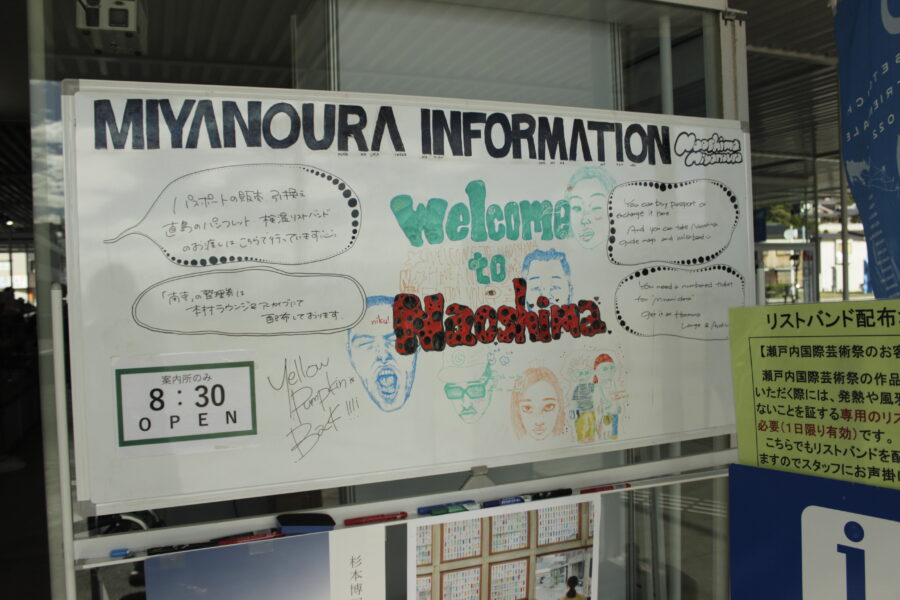 MIYANOURA INFORMATION
Naoshima
Miyanoura
パスポートの販売、引換え
直島のパンフレット・検温リストバンド
のお渡しはこちらで行っています
「南寺」の整理券は
本村ラウンジ&アーカイブにて
配布しております。
Welcome
to
Naoshima
niku!
You can buy passport or
exchange it here.
And you can take Naoshima
guide map and wristband
You need a numbered ticket
for "minamidera"
Get it at Honmura
Lounge &
案内所のみ
8:30
OPEN
Yellow
Pumpkin is
Back!!!!
リストバンド配布
【瀬戸内国際芸術祭のお客
瀬戸内国際芸術祭の作品
いただく際には、発熱や風邪
ないことを証する専用のリス
必要（1日限り有効）です。
こちらでもリストバンドを配
ますのでスタッフにお声掛け
i
杉本博
2022